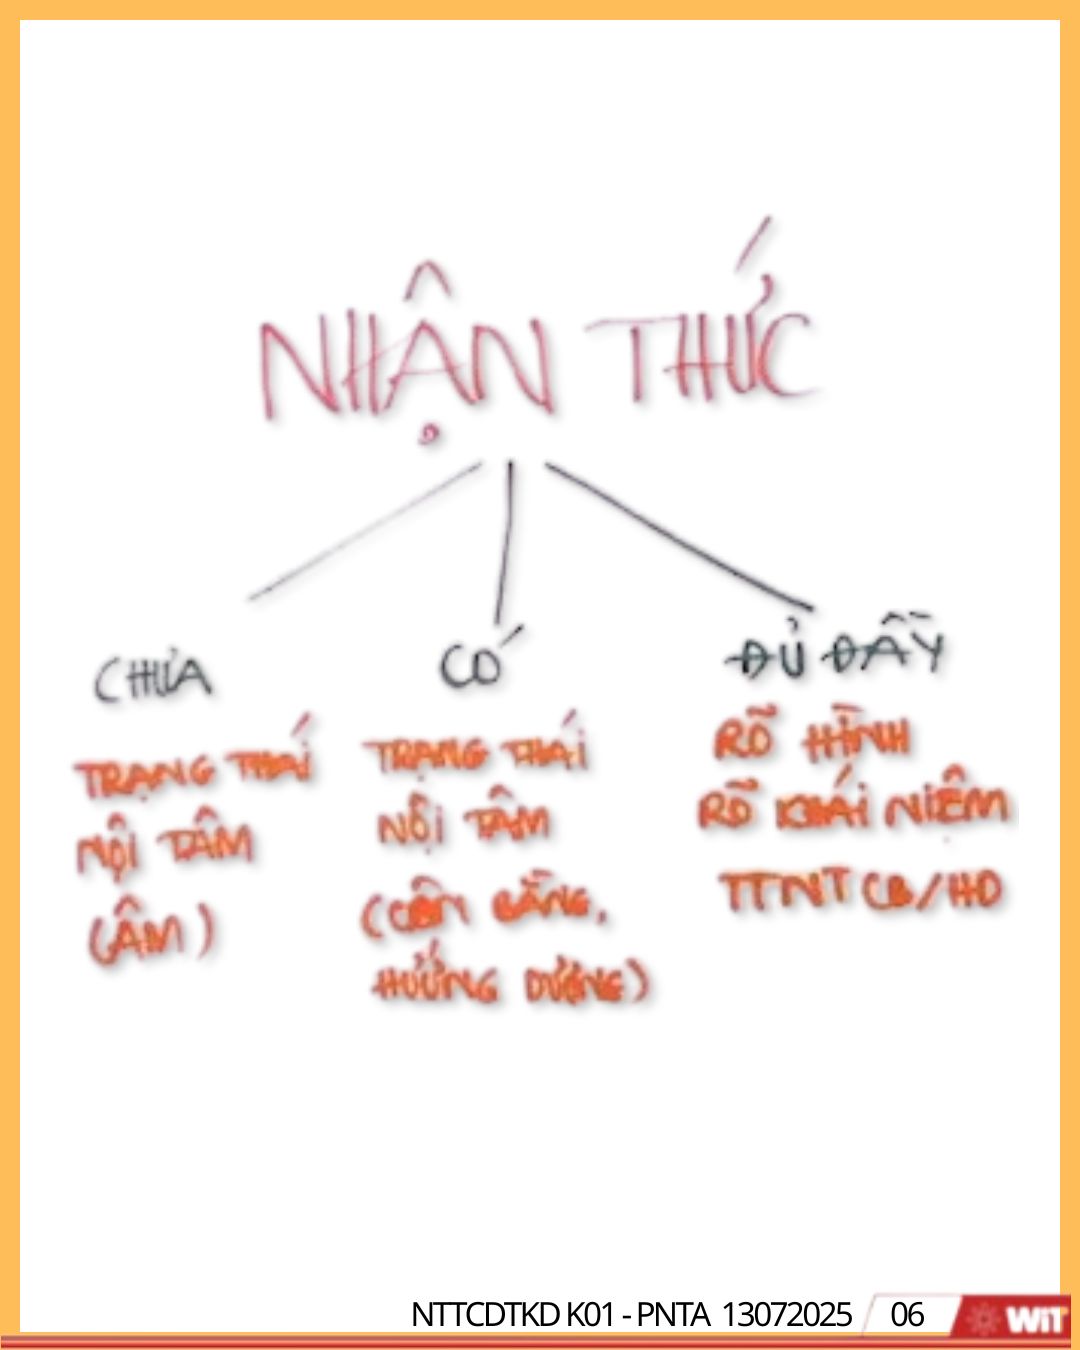 NHẬN THỨC
CHƯA
TRẠNG THÁI
NỘI TÂM
(ÂM)
CÓ
TRẠNG THÁI
NỘI TÂM
(CÂN BẰNG,
HƯỚNG DƯƠNG)
ĐỦ ĐẦY
RÕ HÌNH
RÕ KHÁI NIỆM
TTNT CB/HD
NTTCDTKD K01 - PNTA 13072025
06
WiT